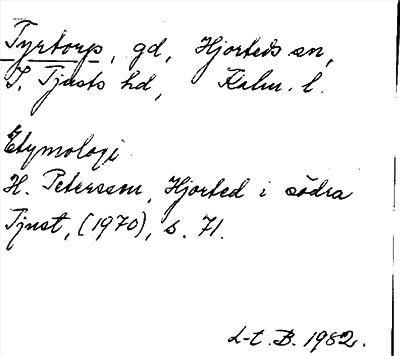 Tyrtorp, gd, Hjorteds sn,
S. Tjusts hd, Kalm. l.
Etymologi
H. Petersson, Hjorted i södra
Tjust, (1970), s. 71.
L-t. B. 1982.